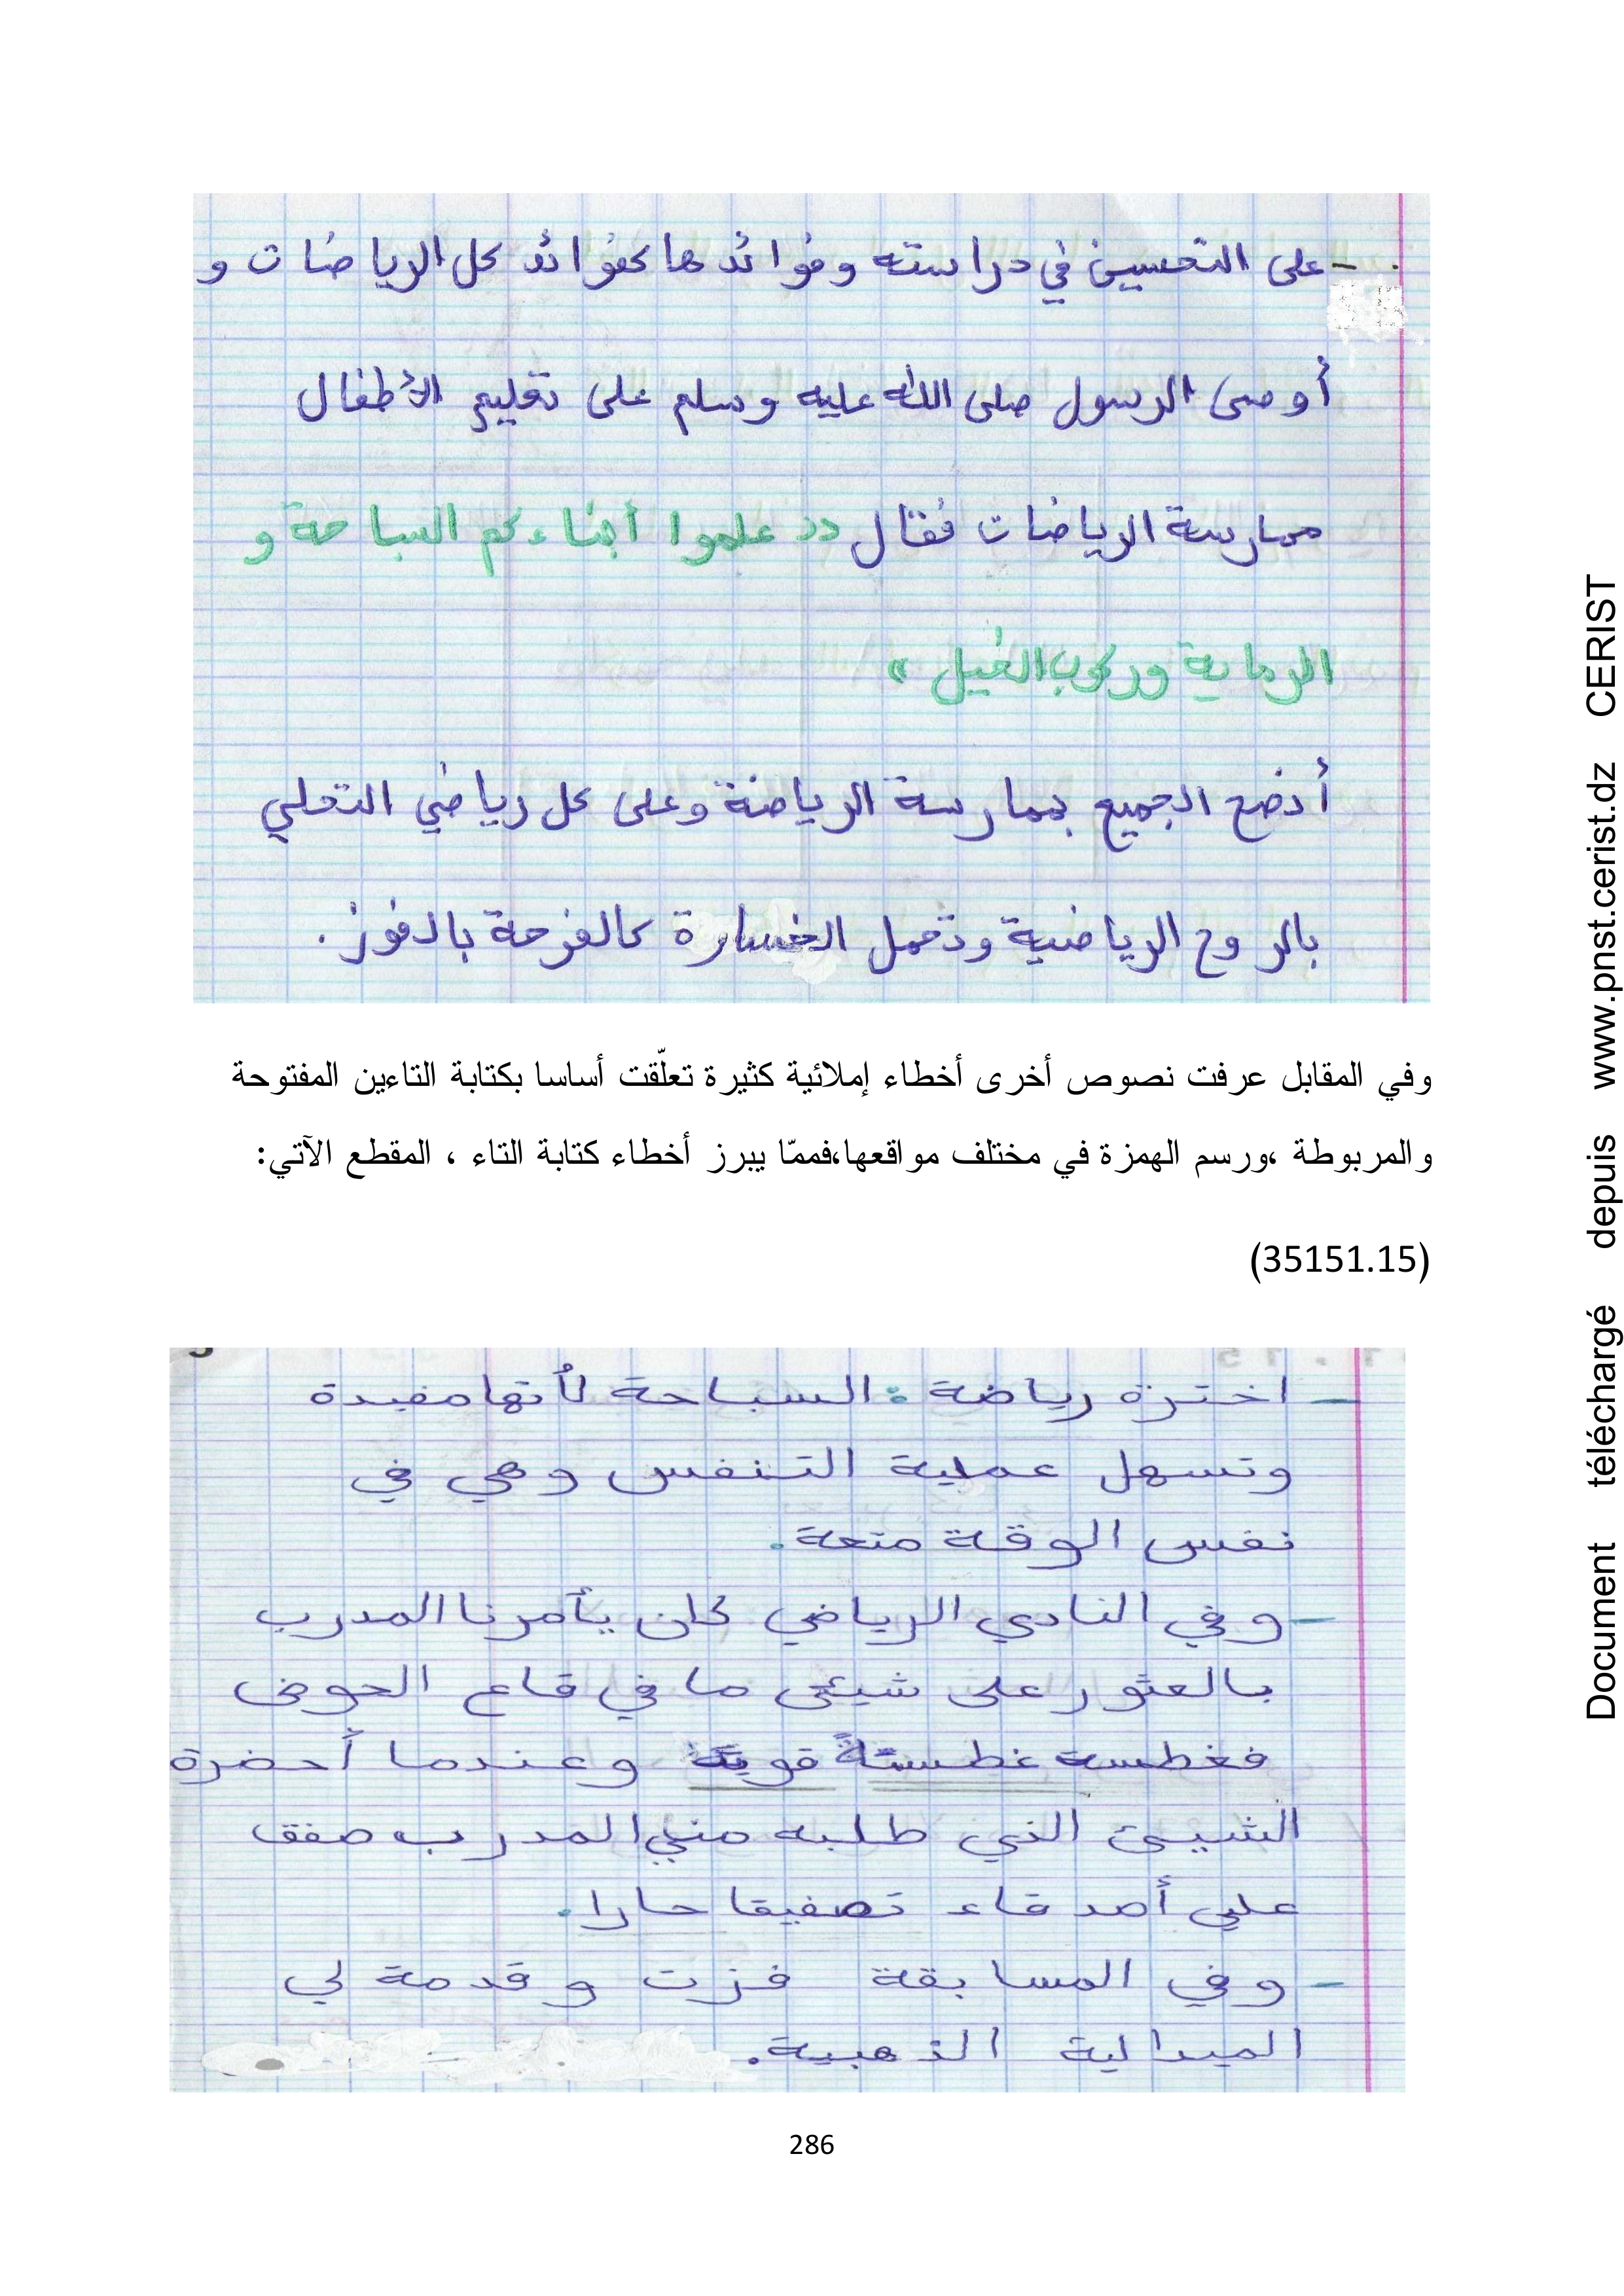 - على التحسين في دراسته وفوائدها كفوائد كل الرياضات و
أوصى الرسول صلى الله عليه وسلم على تعليم الأطفال
ممارسة الرياضات فقال (( علموا أبناءكم السباحة و
الرماية وركوب الخيل ))
أنصح الجميع بممارسة الرياضة وعلى كل رياضي التحلي
بالروح الرياضية وتحمل الخسارة كالفرحة بالفوز.
وفي المقابل عرفت نصوص أخرى أخطاء إملائية كثيرة تعلّقت أساسا بكتابة التاءين المفتوحة
والمربوطة ،ورسم الهمزة في مختلف مواقعها،فممّا يبرز أخطاء كتابة التاء ، المقطع الآتي:
(35151.15)
- اخترة رياضة : السباحة لأنها مفيدة
وتسهل عملية التنفس وهي في
نفس الوقة متعة.
- وفي النادي الرياضي كان يأمرنا المدرب
بالعثور على شيئ ما في قاع الحوض
فغطسة غطستاً قوية وعندما أحضرة
الشيئ الذي طلبه مني المدرب صفق
علي أصدقاء تصفيقا حارا.
- وفي المسابقة فزت وقدمة لي
الميدالية الذهبية.
286
Document téléchargé depuis www.pnst.cerist.dz CERIST